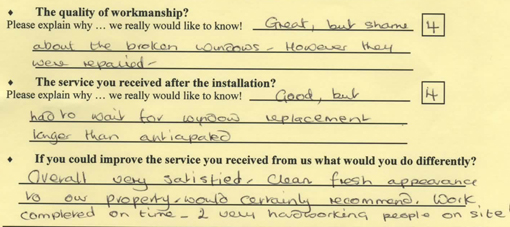 ♦ The quality of workmanship?
Please explain why ... we really would like to know! Great, but shame 4
about the broken windows - However they
were repaired -
♦ The service you received after the installation?
Please explain why ... we really would like to know! Good, but 4
had to wait for window replacement
longer than anticapated
♦ If you could improve the service you received from us what would you do differently?
Overall very satisfied - Clean fresh appearance
to our property - would certainly recommend. Work
completed on time - 2 very hardworking people on site!